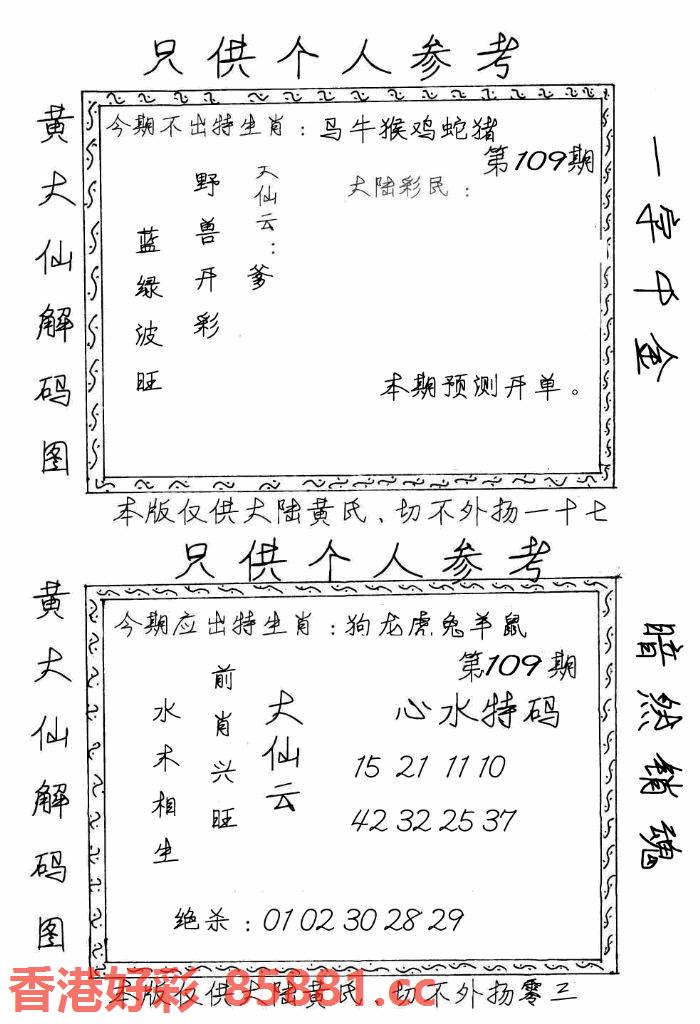 只供个人参考
黄大仙解码图
今期不出特生肖：马牛猴鸡蛇猪
第109期
大仙云：爹
野兽开彩
蓝绿波旺
大陆彩民：
本期预测开单。
一字千金
本版仅供大陆黄氏、切不外扬一十七
只供个人参考
黄大仙解码图
今期应出特生肖：狗龙虎兔羊鼠
第109期
大仙云
前肖兴旺
水木相生
心水特码
15 21 11 10
42 32 25 37
绝杀：01 02 30 28 29
暗然销魂
本版仅供大陆黄氏、切不外扬零三
香港好彩 85881.cc